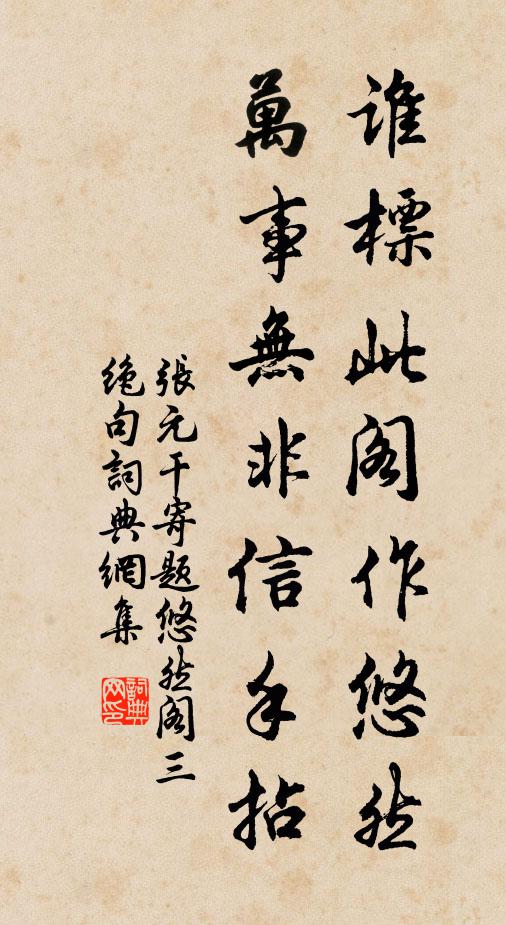 誰標此閣作悠然
萬事無非信手拈
張元干寄題悠然閣三
絶句詞典網集
詞典網印